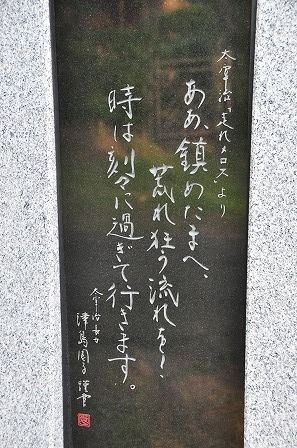 太宰治「走れメロス」より
ああ、鎮めたまへ、
荒れ狂う流れを!
時は刻々に過ぎて行きます。
太宰治長女
津島園子 謹書